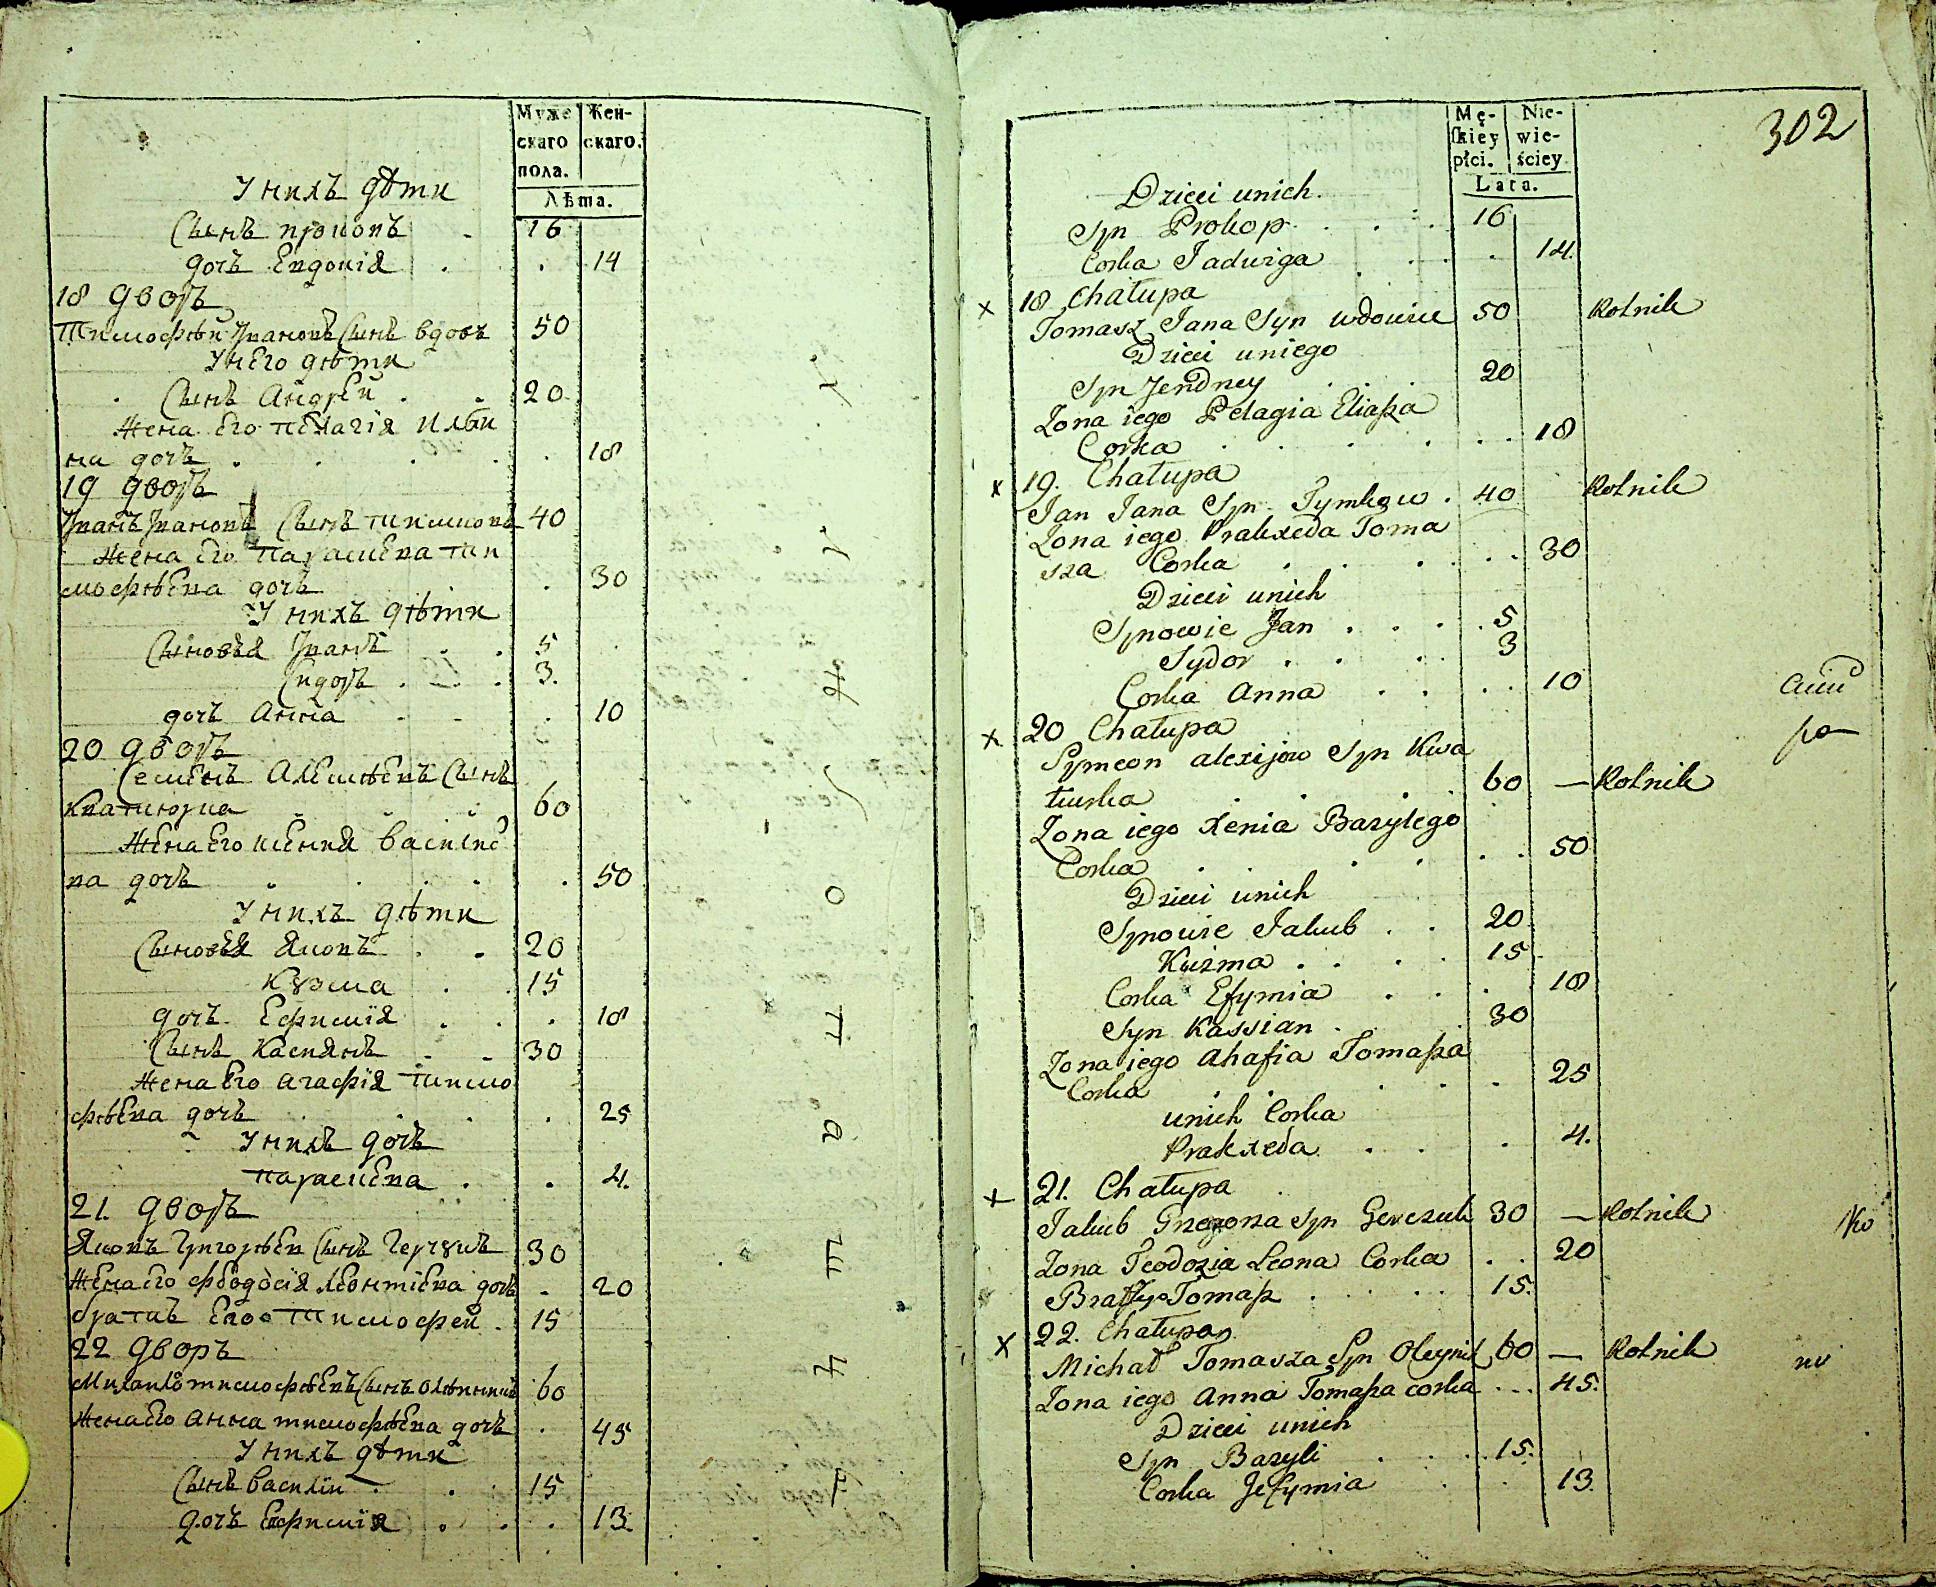 Муже
скаго
пола.
Жен-
скаго.
Лѣта.
У нихъ дѣти
Сынъ прокопъ 16
дочъ Евдокія 14
18 дворъ
Тимофѣй Ивановъ Сынъ вдовъ 50
У него дѣти
Сынъ Андрей 20
Жена Его пелагія Ильи
на дочъ 18
19 дворъ
Иванъ Ивановъ Сынъ тимковъ 40
Жена Его Параскева Ти
мофѣева дочъ 30
У нихъ дѣти
Сыновья Иванъ 5
Сидоръ 3.
дочъ Анна 10
20 дворъ
Семенъ Алексѣевъ Сынъ
Кватюрка 60
Жена Его ксенія василіе
ва дочъ 50
У нихъ дѣти
Сыновья Яковъ 20
Кузма 15
дочъ Ефимія 18
Сынъ Касиянъ 30
Жена Его Агафія тимо
фѣева дочъ 25
У нихъ дочъ
параскева 4.
21. дворъ
Яковъ Григорѣев Сынъ Герчукъ 30
Жена Его феодосія Леонтіева дочъ 20
братъ Его Тимофей 15
22 дворъ
Михайло тимофѣевъ Сынъ олѣйникъ 60
Жена Его Анна тимофѣева дочъ 45
У нихъ дѣти
Сынъ василій 15
дочъ Ефимія 13.
302
Mę-
skiey
płci.
Nie-
wie-
ściey
Lata.
Dzieci unich
Syn Prokop 16
Corka Jadwiga 14.
x 18 Chałupa
Tomasz Jana Syn wdowiec 50 Rolnik
Dzieci uniego
Syn Jendrzey 20
Zona iego Pelagia Eliasza
Corka 18
x 19. Chałupa
Jan Jana Syn Tymkow 40 Rolnik
Zona iego Prakxeda Toma
sza Corka 30
Dzieci unich
Synowie Jan 5
Sydor 3
Corka Anna 10
x 20 Chałupa
Symeon alexijow Syn Kwa
turka 60 — Rolnik
Zona iego Xenia Bazylego
Corka 50
Dzieci unich
Synowie Jakub 20
Kuzma 15
Corka Efymia 18
Syn Kassian 30
Zona iego Ahafia Tomasza
Corka 25
unich Corka
Prakxeda 4.
x 21. Chałupa
Jakub Grzegorza Syn Gerczuk 30 — Rolnik
Zona Teodozia Leona Corka 20
Brat Jego Tomasz 15.
x 22. Chałupa
Michał Tomasza Syn Oleynik 60 — Rolnik
Zona iego Anna Tomasza corka 45.
Dzieci unich
Syn Bazyli 15.
Corka Jefymia 13.